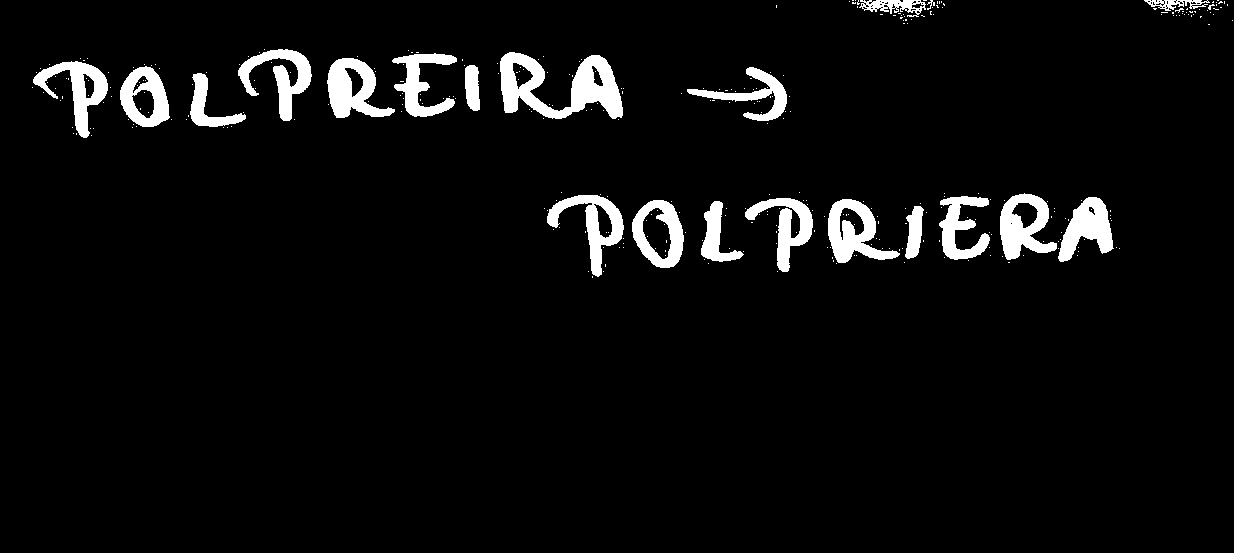 POLPREIRA →
POLPRIERA